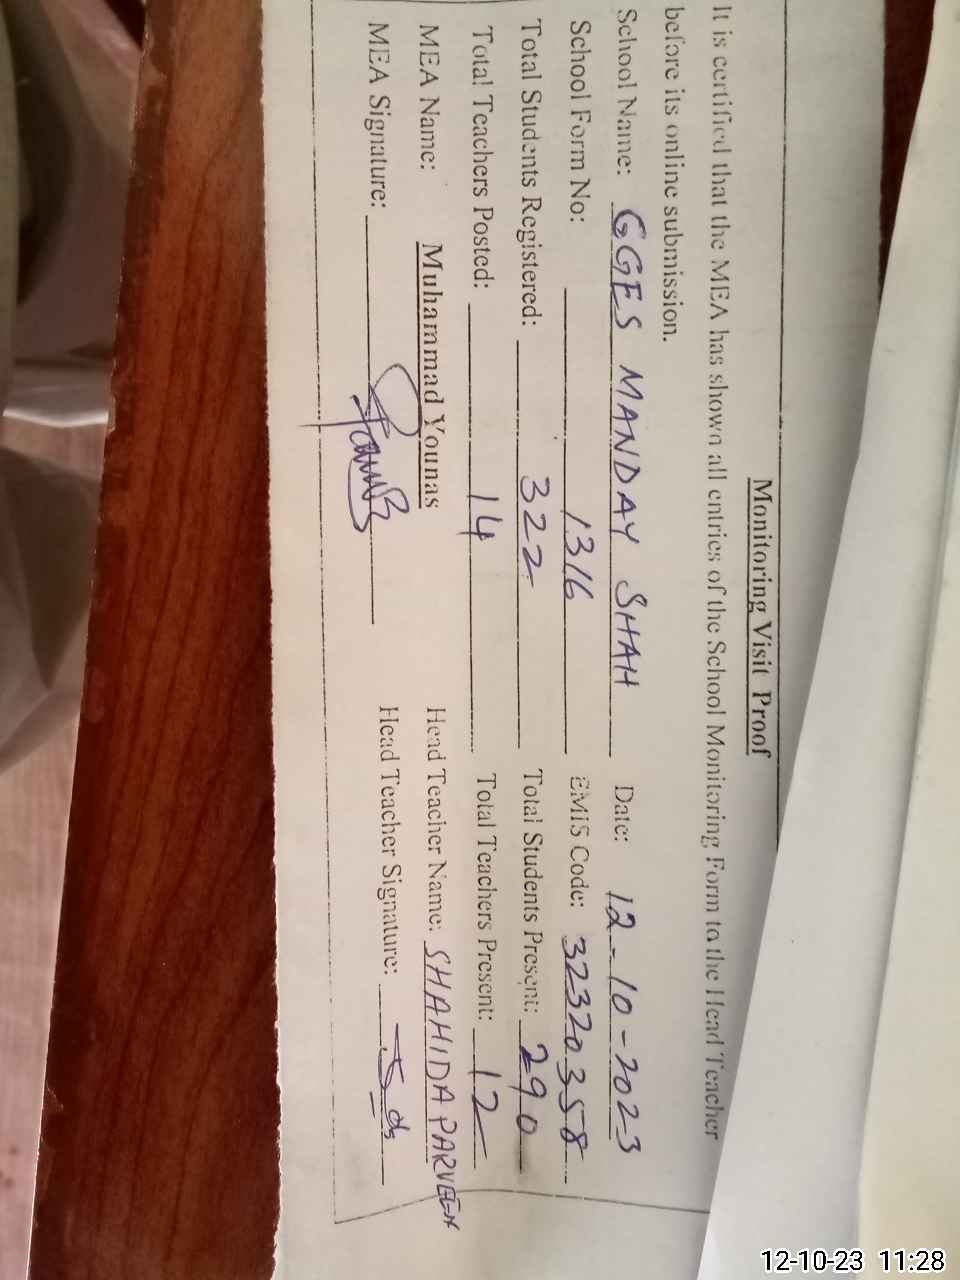 Monitoring Visit Proof
It is certified that the MEA has shown all entries of the School Monitoring Form to the Head Teacher
before its online submission.
School Name: GGES MANDAY SHAH Date: 12-10-2023
School Form No: 1316 EMIS Code: 32320358
Total Students Registered: 322 Total Students Present: 290
Total Teachers Posted: 14 Total Teachers Present: 12
MEA Name: Muhammad Younas Head Teacher Name: SHAHIDA PARVEEN
MEA Signature: Head Teacher Signature:
12-10-23 11:28